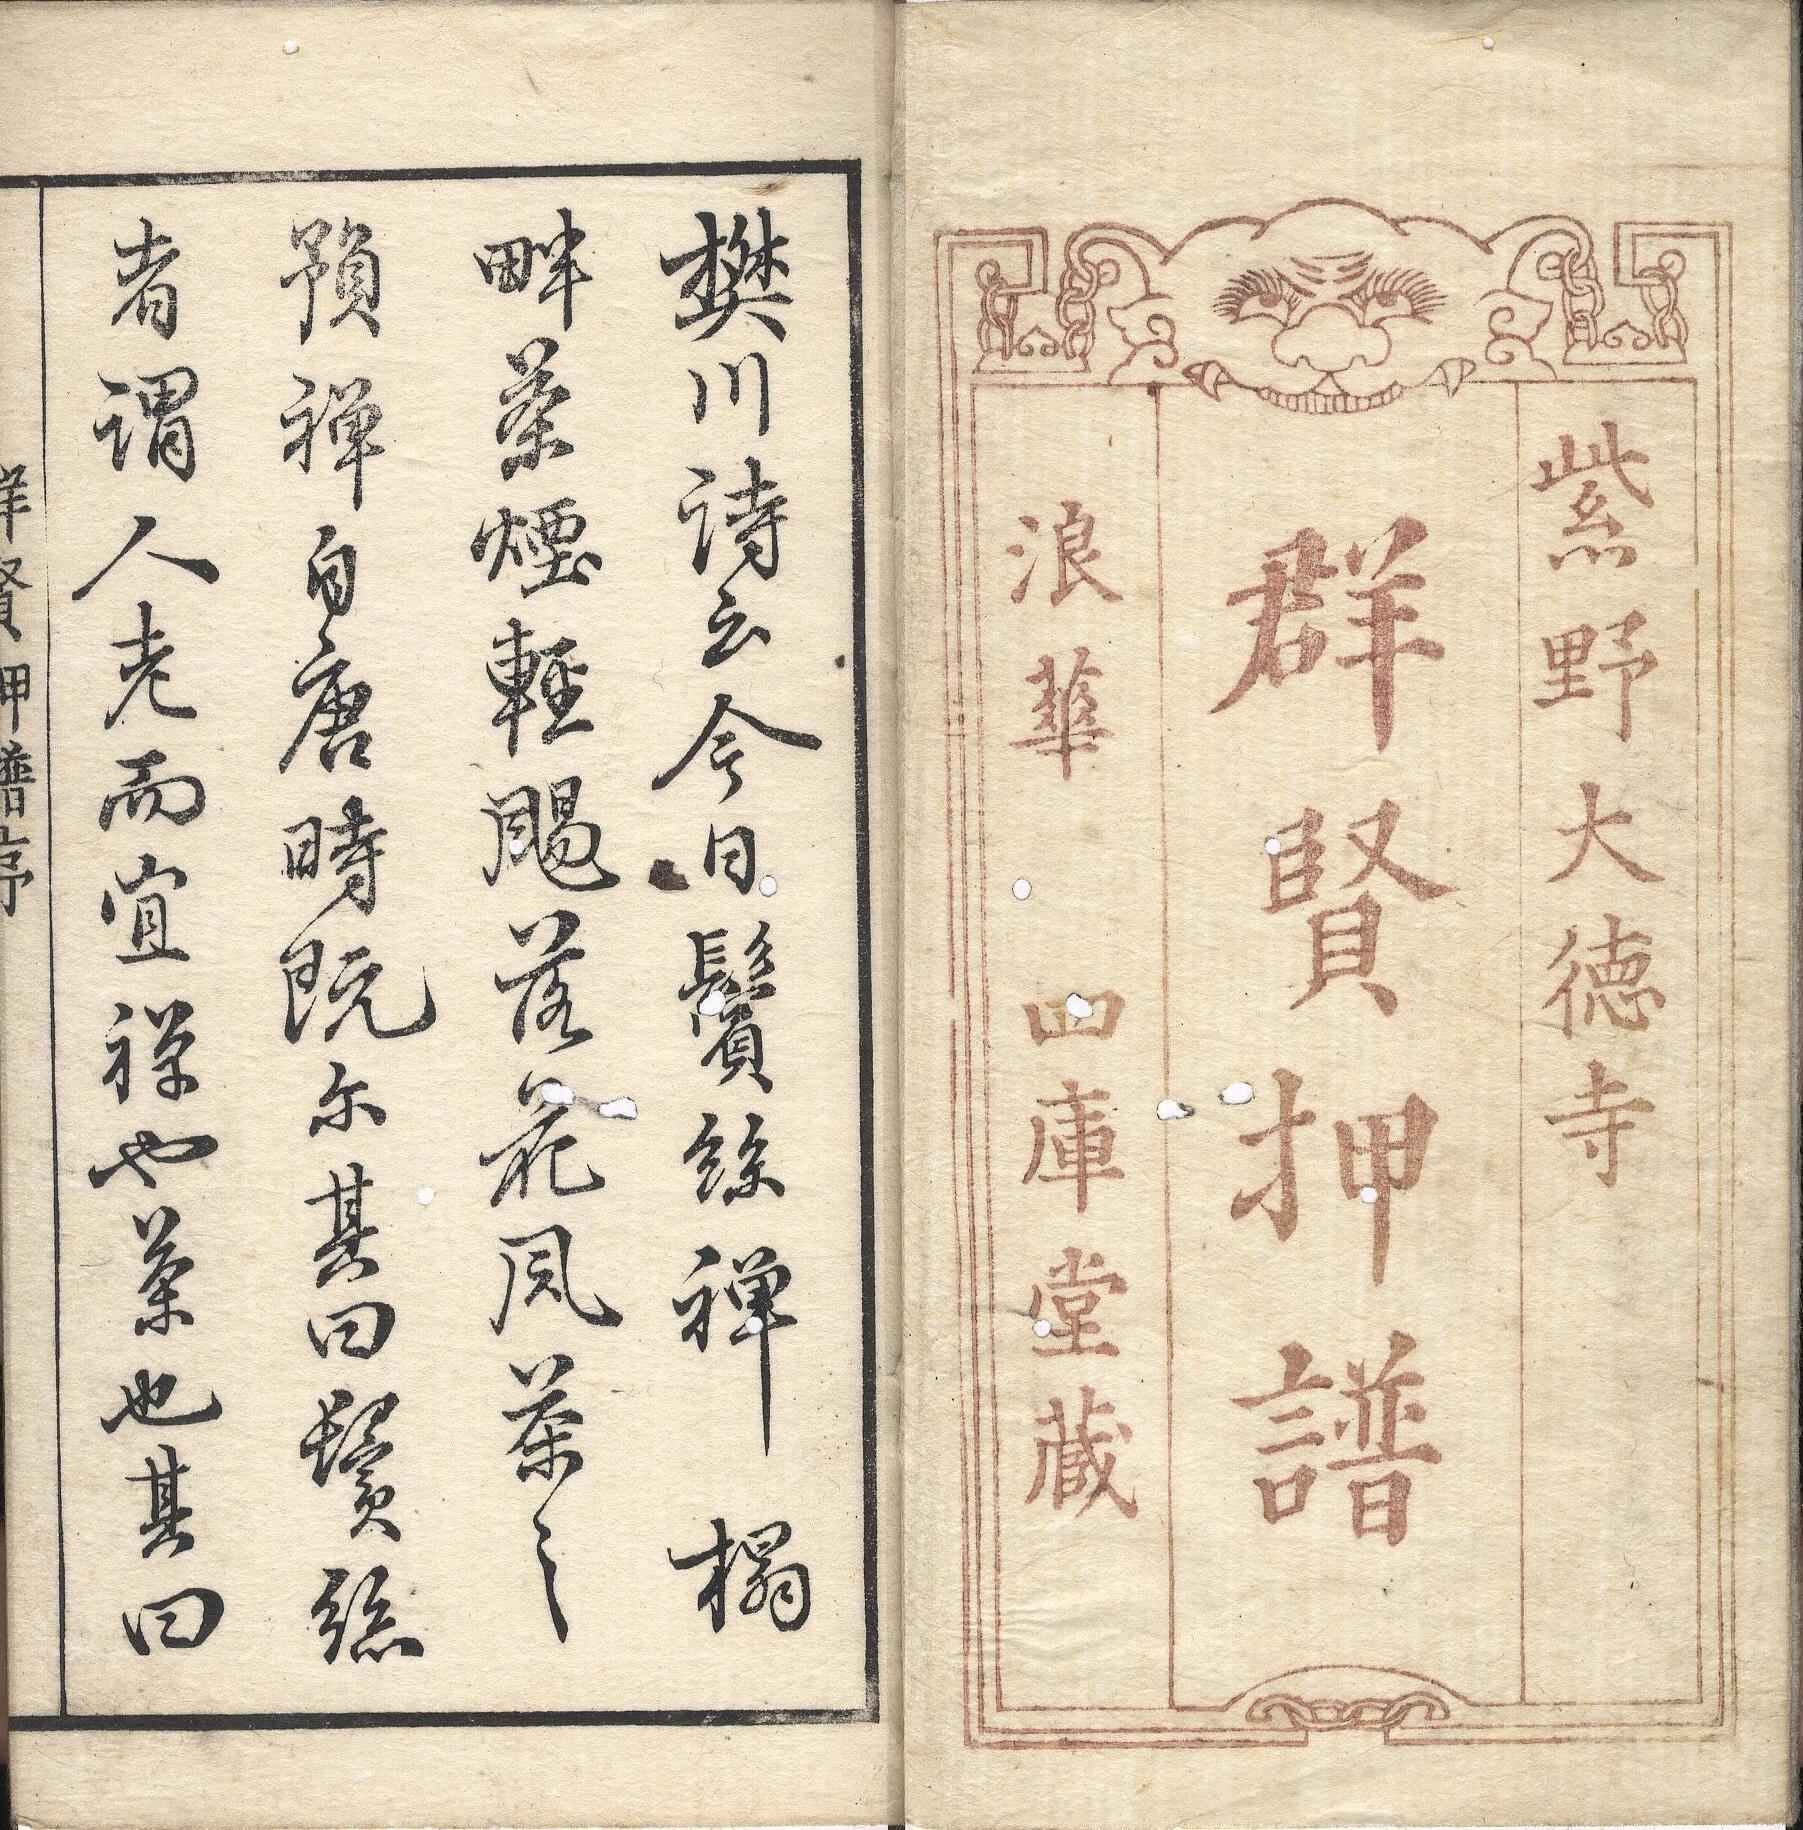 紫野大徳寺
群賢押譜
浪華 四庫堂蔵
樊川詩云今日鬢絲禅榻
畔茶煙輕颺落花風茶之
預禅自唐時既尔其曰鬢絲
者謂人老而宜禅也茶也其曰
群賢押譜序